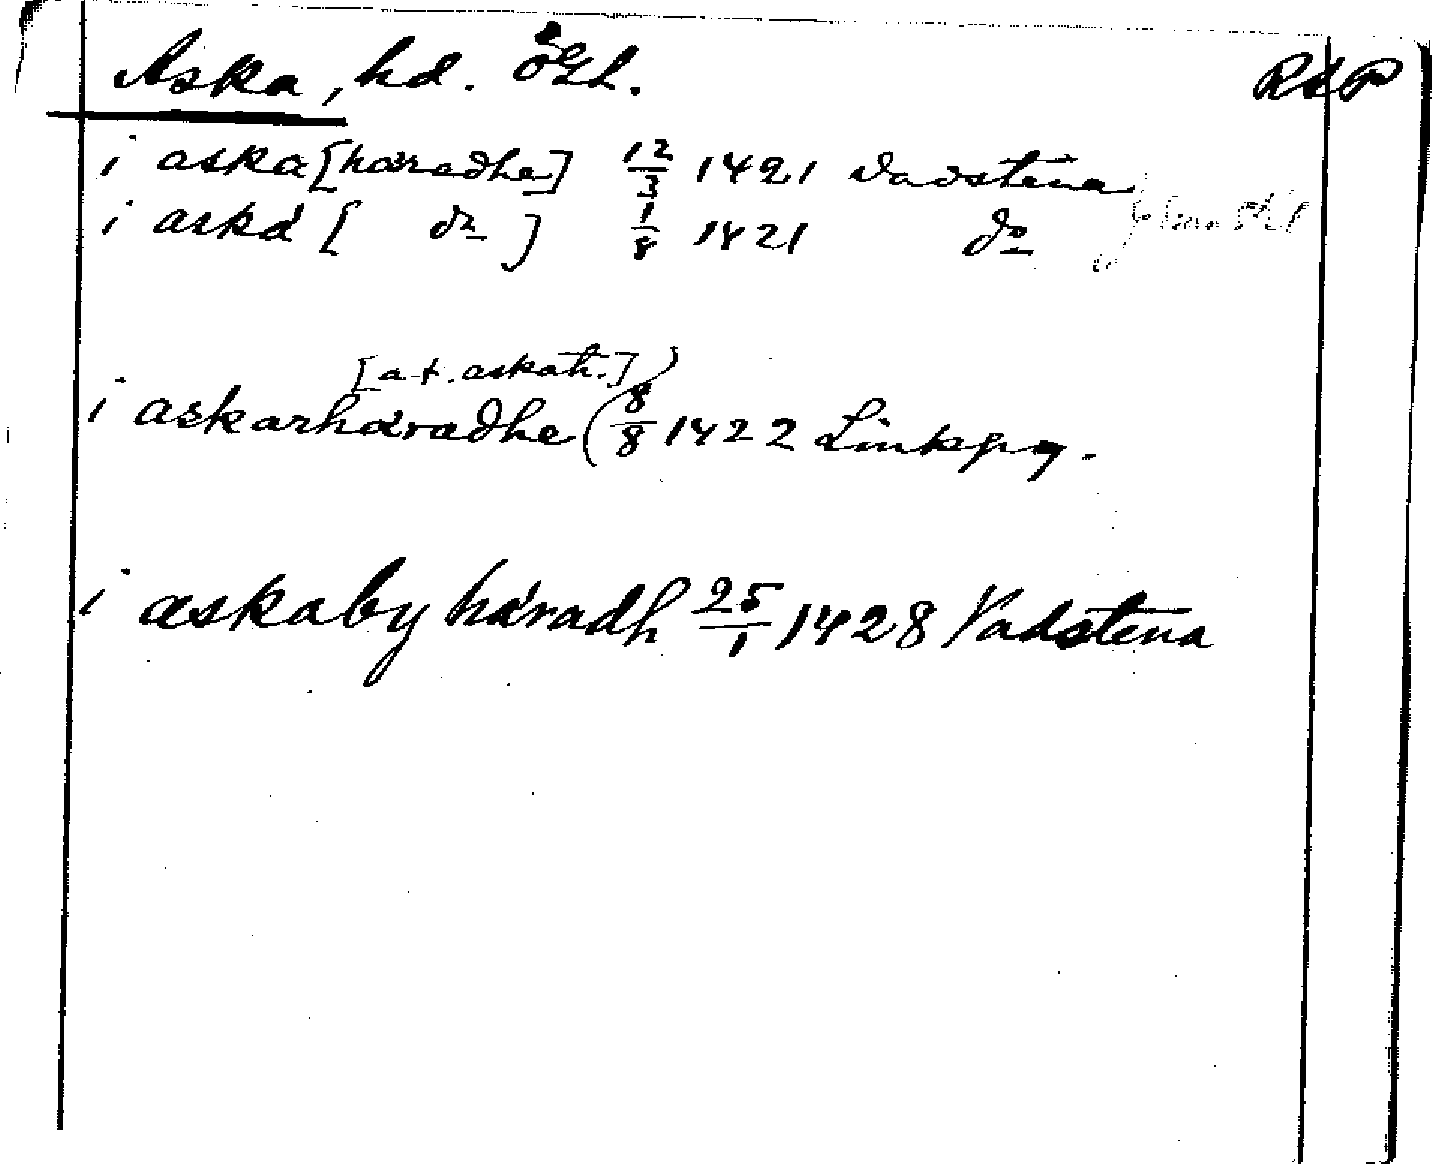 Aska, hd. ÖGL. RAP
i aska [häradhe] 12/3 1421 Vadstena
i aska [ do ] 1/8 1421 do
[a t. askah.]
i askarhäradhe (8/8 1422 Linkpg.
i askaby häradh 25/1 1428 Vadstena